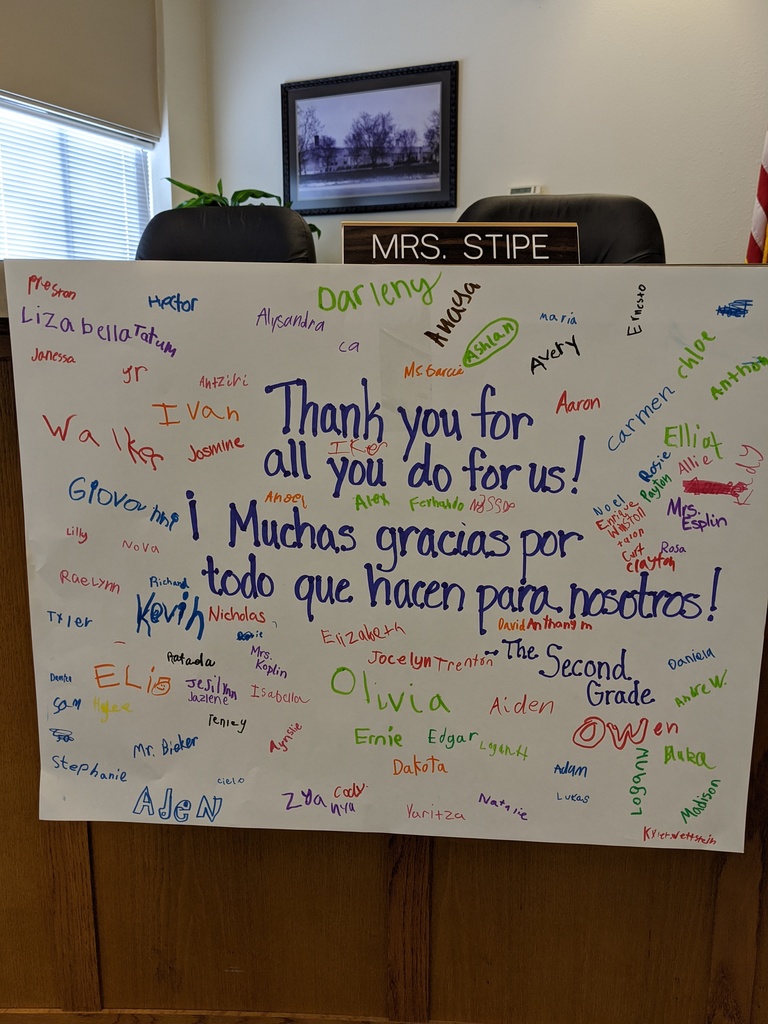 MRS. STIPE
Preston
Hector
Darleny
Anaya
Ernesto
Lizabella
Tatum
Alysandra
ca
Ashlan
maria
Avery
chloe
Janessa
yr
Ms. Garcia
Ivan
Aaron
carmen
Thank you for
Walker
Jasmine
Iker
Elliot
all you do for us!
Rosie
Allie
Payton
Giovanni
Angel
Alex
Fernando
Noel
Enrique
Winston
Mrs.
Esplin
¡Muchas gracias por
Lilly
Nova
Curt
Rosa
clayton
Raelynn
Richard
todo que hacen para nosotros!
Tyler
Kevin
Nicholas
Elizabeth
David
Anthany m
Mrs.
Koplin
Jocelyn
Trenton
-The Second
Grade
Daniela
Elis
Jesilynn
Jazlene
Isabella
Olivia
Aiden
Andrew
Sam
Tenley
Owen
Mr. Bieker
Aynslie
Ernie
Edgar
Logan H
Stephanie
cielo
Dakota
Adam
LoganW
Aden
Zya
Cody
nya
Yaritza
Natalie
Lukas
Madison
Kyler Wettstein